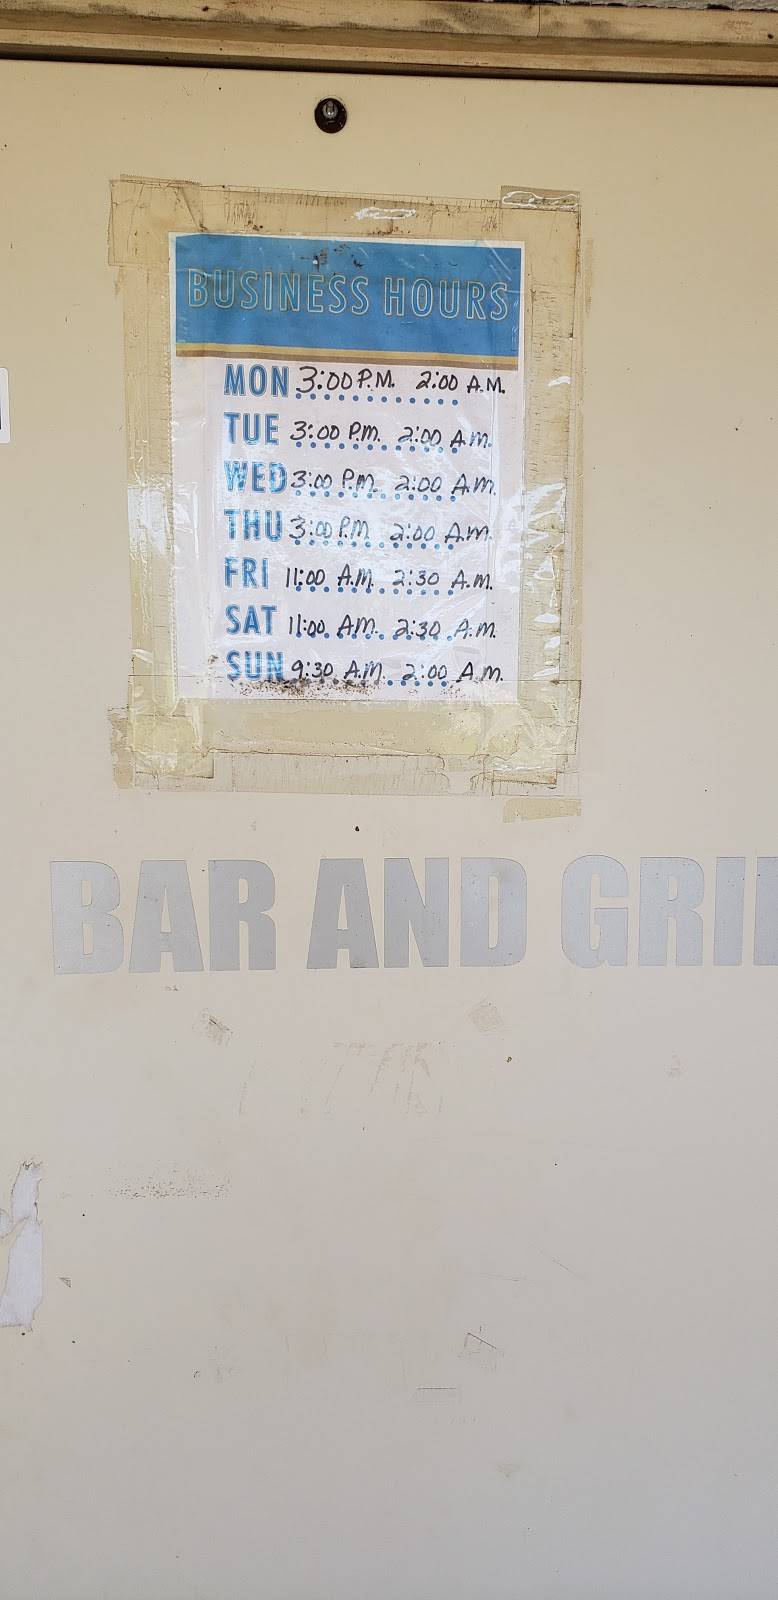 BUSINESS HOURS
MON 3:00 P.M. 2:00 A.M.
TUE 3:00 P.M. 2:00 A.M.
WED 3:00 P.M. 2:00 A.M.
THU 3:00 P.M. 2:00 A.M.
FRI 11:00 A.M. 2:30 A.M.
SAT 11:00 A.M. 2:30 A.M.
SUN 9:30 A.M. 2:00 A.M.
BAR AND GRI